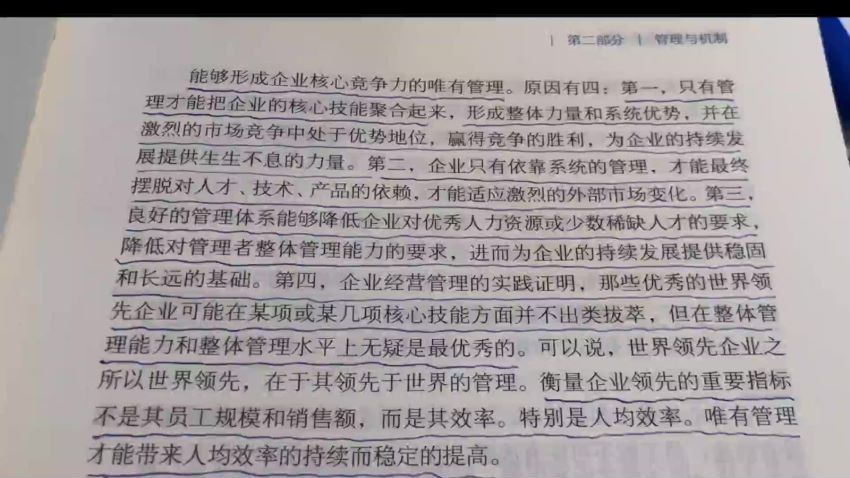 第二部分 | 管理与机制
能够形成企业核心竞争力的唯有管理。原因有四：第一，只有管
理才能把企业的核心技能聚合起来，形成整体力量和系统优势，并在
激烈的市场竞争中处于优势地位，赢得竞争的胜利，为企业的持续发
展提供生生不息的力量。第二，企业只有依靠系统的管理，才能最终
摆脱对人才、技术、产品的依赖，才能适应激烈的外部市场变化。第三，
良好的管理体系能够降低企业对优秀人力资源或少数稀缺人才的要求，
降低对管理者整体管理能力的要求，进而为企业的持续发展提供稳固
和长远的基础。第四，企业经营管理的实践证明，那些优秀的世界领
先企业可能在某项或某几项核心技能方面并不出类拔萃，但在整体管
理能力和整体管理水平上无疑是最优秀的。可以说，世界领先企业之
所以世界领先，在于其领先于世界的管理。衡量企业领先的重要指标
不是其员工规模和销售额，而是其效率。特别是人均效率。唯有管理
才能带来人均效率的持续而稳定的提高。